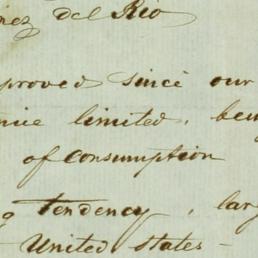 nez del Rio
proved since our
limited, be
of consumption
g tendency, lar
United States -